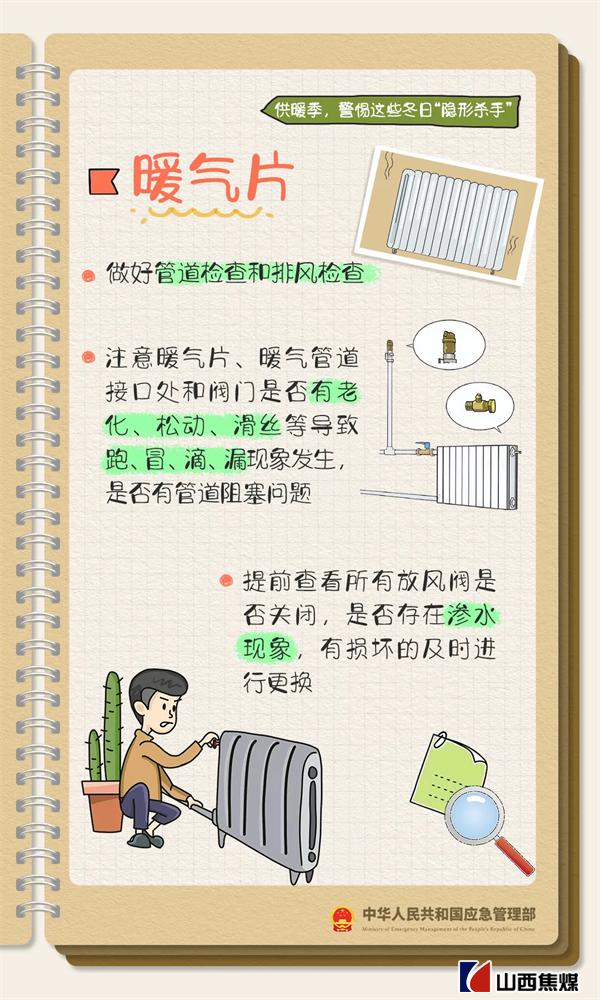 供暖季，警惕这些冬日“隐形杀手”
暖气片
做好管道检查和排风检查
注意暖气片、暖气管道
接口处和阀门是否有老
化、松动、滑丝等导致
跑、冒、滴、漏现象发生，
是否有管道阻塞问题
提前查看所有放风阀是
否关闭，是否存在渗水
现象，有损坏的及时进
行更换
中华人民共和国应急管理部
Ministry of Emergency Management of the People's Republic of China
山西焦煤